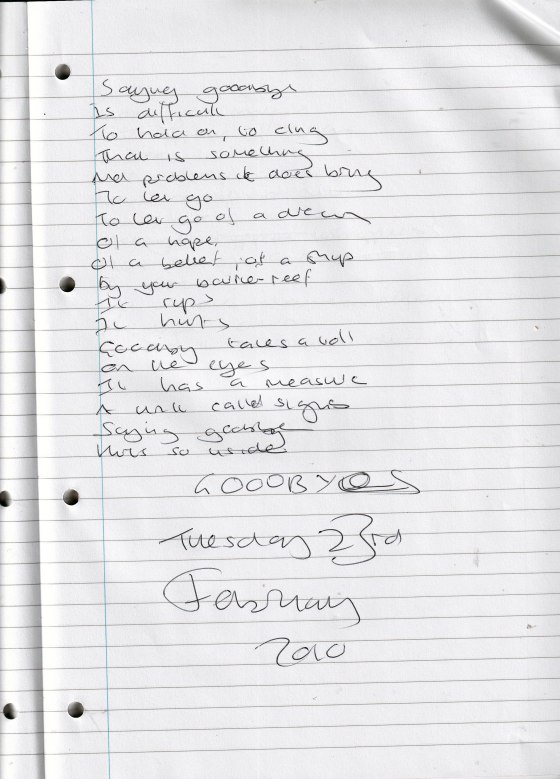 Saying goodbye
Is difficult
To hold on, to cling
That is something
And problems it does bring
To let go
To let go of a dream
Of a hope,
Of a belief, of a ship
By your barrier-reef
It rips
It hurts
Goodby takes a toll
on the eyes
It has a measure
A unit called sighs
Saying goodbye
Hurts so inside
GOODBYES
Tuesday 23rd
February
2010